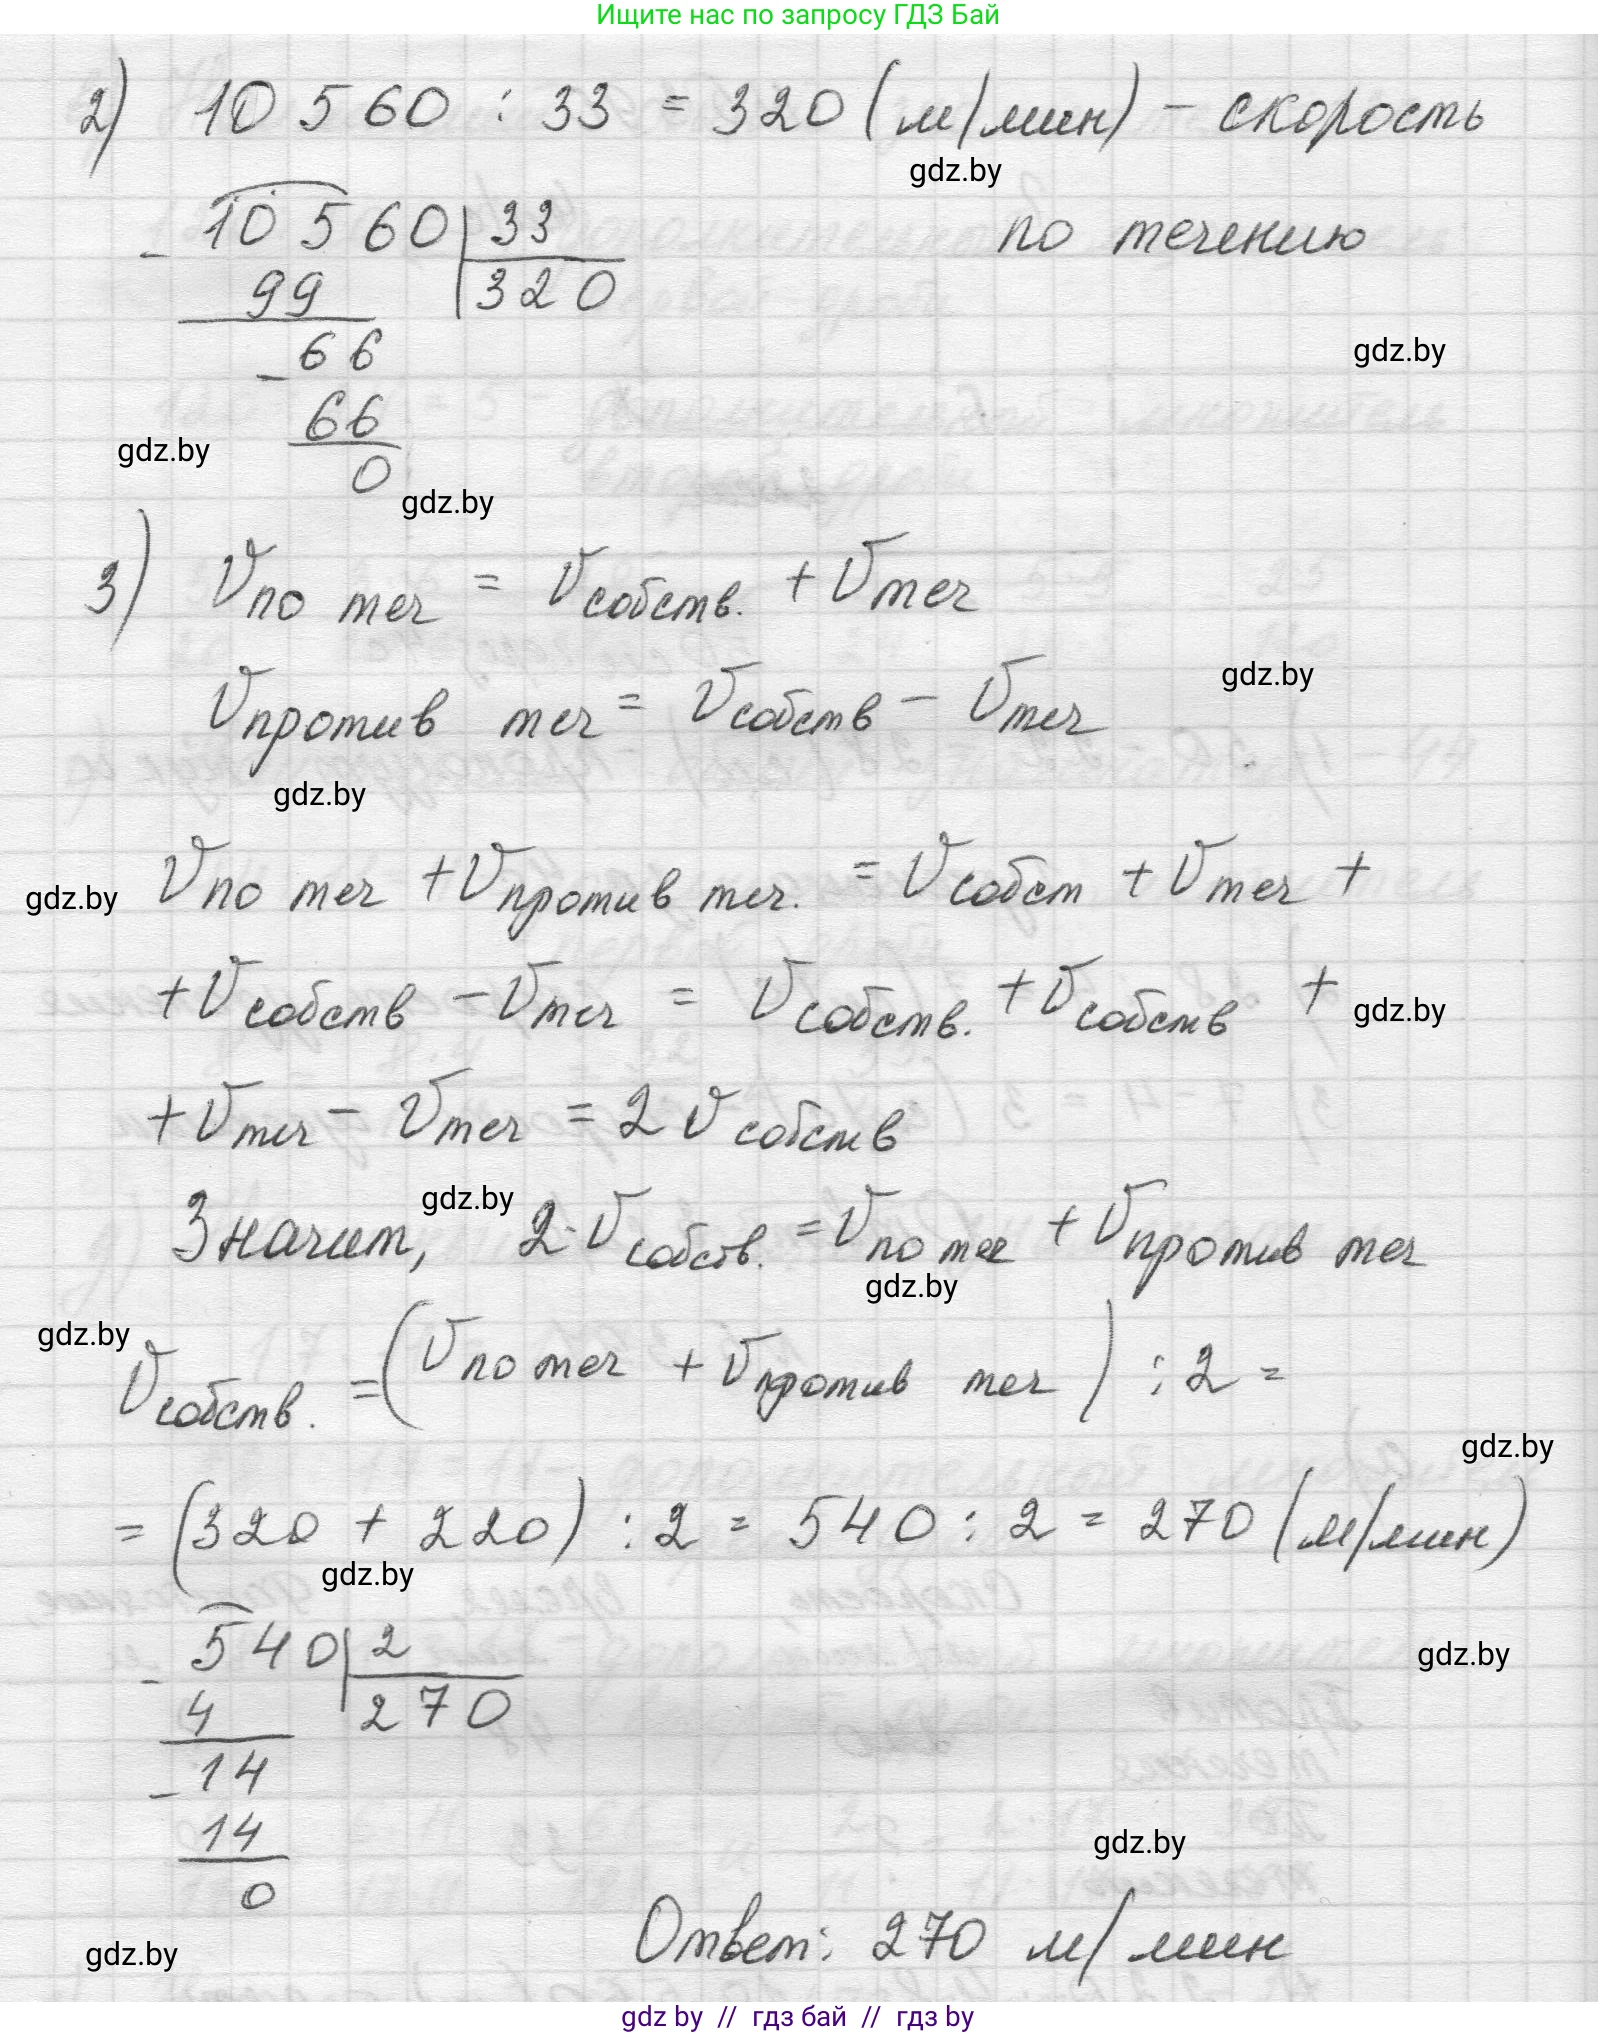 Ищите нас по запросу ГДЗ Бай
2) 10 560 : 33 = 320 (м/мин) - скорость
gdz.by
по течению
- 10 560 | 33
99 | 320
gdz.by
- 66
66
gdz.by
0
gdz.by
3) Vпо теч = Vсобств. + Vтеч
gdz.by
Vпротив теч = Vсобств - Vтеч
gdz.by
gdz.by
Vпо теч + Vпротив теч. = Vсобст + Vтеч +
+ Vсобств - Vтеч = Vсобств. + Vсобств +
gdz.by
+ Vтеч - Vтеч = 2 Vсобств
gdz.by
Значит, 2·Vсобств. = Vпо теч + Vпротив теч
gdz.by
gdz.by
Vсобств. = (Vпо теч + Vпротив теч) : 2 =
gdz.by
= (320 + 220) : 2 = 540 : 2 = 270 (м/мин)
gdz.by
- 540 | 2
gdz.by
4 | 270
- 14
14
gdz.by
0
Ответ: 270 м/мин
gdz.by
gdz by // гдз бай // гдз by